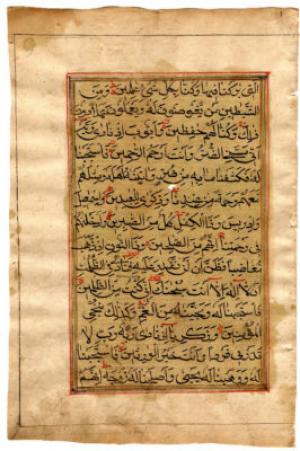 التى بركنا فيها وكنا بكل شىء علمين ومن
الشيطين من يغوصون له ويعملون عملا دون
ذلك وكنا لهم حفظين وايوب اذ نادى ربه
انى مسنى الضر وانت ارحم الرحمين فاستجبنا
له فكشفنا ما به من ضر واتينه اهله ومثلهم
معهم رحمة من عندنا وذكرى للعبدين واسمعيل
وادريس وذا الكفل كل من الصبرين وادخلنهم
فى رحمتنا انهم من الصلحين وذا النون اذ ذهب
مغاضبا فظن ان لن نقدر عليه فنادى فى الظلمت
ان لا اله الا انت سبحنك انى كنت من الظلمين
فاستجبنا له ونجينه من الغم وكذلك نجى
المؤمنين وزكريا اذ نادى ربه رب لا
تذرنى فردا وانت خير الورثين فاستجبنا
له ووهبنا له يحيى واصلحنا له زوجه انهم